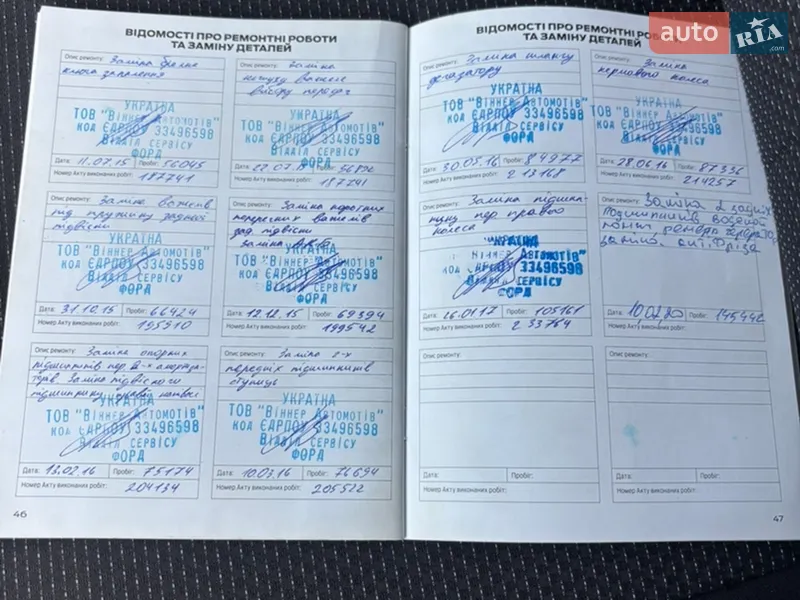 ВІДОМОСТІ ПРО РЕМОНТНІ РОБОТИ
ТА ЗАМІНУ ДЕТАЛЕЙ
Опис ремонту: Заміна
ключа запалення
УКРАЇНА
ТОВ "ВІННЕР АВТОМОТІВ"
КОД ЄДРПОУ 33496598
ВІДДІЛ СЕРВІСУ
ФОРД
Дата: 11.07.15 Пробіг: 56045
Номер Акту виконаних робіт:
187741
Опис ремонту: Заміна
кожуху важеля
вибору передач
УКРАЇНА
ТОВ "ВІННЕР АВТОМОТІВ"
КОД ЄДРПОУ 33496598
ВІДДІЛ СЕРВІСУ
ФОРД
Дата: Пробіг:
Номер Акту виконаних робіт:
187741
Опис ремонту: Заміна важелів
під пружину задньої
підвіски
УКРАЇНА
ТОВ "ВІННЕР АВТОМОТІВ"
КОД ЄДРПОУ 33496598
ВІДДІЛ СЕРВІСУ
ФОРД
Дата: 31.10.15 Пробіг: 66424
Номер Акту виконаних робіт:
195310
Опис ремонту: Заміна коротких
поперечних важелів
зад. підвіски
заміна
УКРАЇНА
ТОВ "ВІННЕР АВТОМОТІВ"
КОД ЄДРПОУ 33496598
ВІДДІЛ СЕРВІСУ
ФОРД
Дата: 12.12.15 Пробіг: 69394
Номер Акту виконаних робіт:
199542
Опис ремонту: Заміна опорних
підшипників пер
Заміна підвісного
підшипнику
УКРАЇНА
ТОВ "ВІННЕР АВТОМОТІВ"
КОД ЄДРПОУ 33496598
ВІДДІЛ СЕРВІСУ
ФОРД
Дата: 13.02.16 Пробіг: 75174
Номер Акту виконаних робіт:
204134
Опис ремонту: Заміна 2-х
передніх підшипників
ступиць
УКРАЇНА
ТОВ "ВІННЕР АВТОМОТІВ"
КОД ЄДРПОУ 33496598
ВІДДІЛ СЕРВІСУ
ФОРД
Дата: 10.03.16 Пробіг: 76694
Номер Акту виконаних робіт:
205522
46
ВІДОМОСТІ ПРО РЕМОНТНІ РОБОТИ
ТА ЗАМІНУ ДЕТАЛЕЙ
Опис ремонту: Заміна шлангу
дегазатору
УКРАЇНА
ТОВ "ВІННЕР АВТОМОТІВ"
КОД ЄДРПОУ 33496598
ВІДДІЛ СЕРВІСУ
ФОРД
Дата: 30.05.16 Пробіг: 84977
Номер Акту виконаних робіт:
213168
Опис ремонту: Заміна
кермового колеса
УКРАЇНА
ТОВ "ВІННЕР АВТОМОТІВ"
КОД ЄДРПОУ 33496598
ВІДДІЛ СЕРВІСУ
ФОРД
Дата: 28.06.16 Пробіг: 87336
Номер Акту виконаних робіт:
214257
Опис ремонту: Заміна підшип-
нику пер правого
колеса
УКРАЇНА
АВТОМОТІВ"
КОД ЄДРПОУ 33496598
ВІДДІЛ СЕРВІСУ
ФОРД
Дата: 26.01.17 Пробіг: 105161
Номер Акту виконаних робіт:
233754
Опис ремонту: Заміна 2 задніх
Підшипників
Дата: 10.02.20 Пробіг: 145442
Номер Акту виконаних робіт:
Опис ремонту:
Дата: Пробіг:
Номер Акту виконаних робіт:
Опис ремонту:
Дата: Пробіг:
Номер Акту виконаних робіт:
47
auto RIA.com